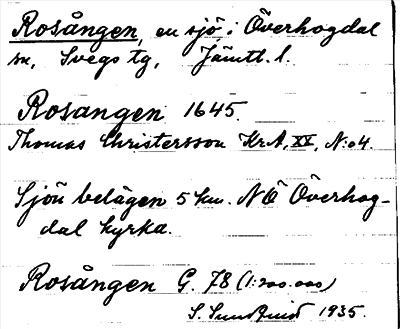 Rosången, en sjö i Överhogdal
sn, Svegs tg, Jämtl. l.
Rosangen 1645.
Thomas Christersson Kr.A, XX, N:o 4.
Sjön belägen 5 km. NÖ Överhog-
dal kyrka.
Rosången G. 78 (1:200.000)
S. Sundkvist 1935.